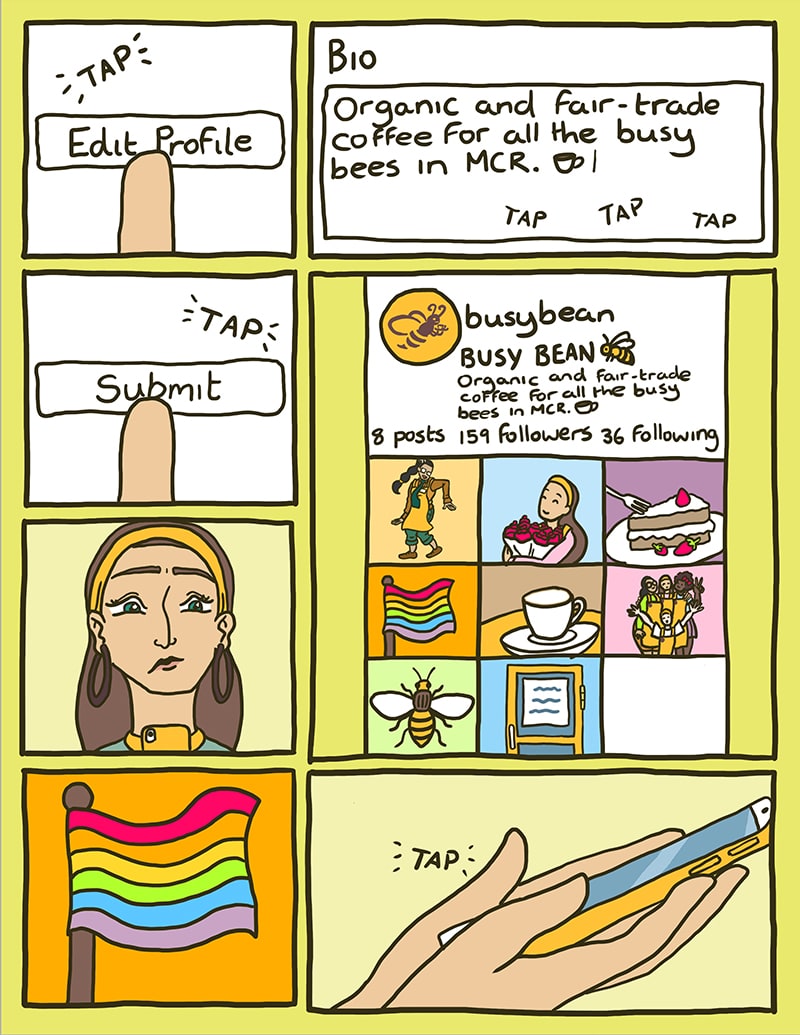 TAP
Edit Profile
Bio
Organic and fair-trade
coffee for all the busy
bees in MCR.
TAP TAP TAP
TAP
Submit
busybean
BUSY BEAN
Organic and fair-trade
coffee for all the busy
bees in MCR.
8 posts 159 followers 36 following
TAP